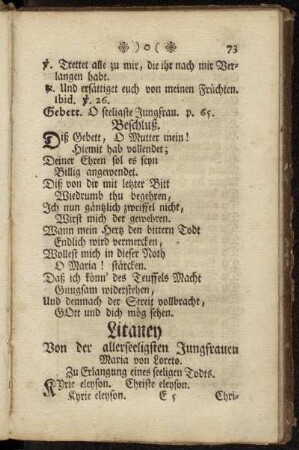 )o( 73
℣. Trettet alle zu mir, die ihr nach mir Ver-
langen habt.
℟. Und ersättiget euch von meinen Früchten.
Ibid. ℣. 26.
Gebett. O seeligste Jungfrau. p. 65.
Beschluß.
Diß Gebett, O Mutter mein!
Hiemit hab vollendet;
Deiner Ehren sol es seyn
Billig angewendet.
Diß von dir mit letzter Bitt
Wiedrumb thu begehren,
Ich nun gäntzlich zweiffel nicht,
Wirst mich der gewehren.
Wann mein Hertz den bittern Todt
Endlich wird vermercken,
Wollest mich in dieser Noth
O Maria! stärcken.
Daß ich könn' des Teuffels Macht
Gnugsam widerstehen,
Und demnach der Streit vollbracht,
GOtt und dich mög sehen.
Litaney
Von der allerseeligsten Jungfrauen
Maria von Loreto.
Zu Erlangung eines seeligen Todts.
Kyrie eleyson. Christe eleyson.
Kyrie eleyson. E 5 Chri-